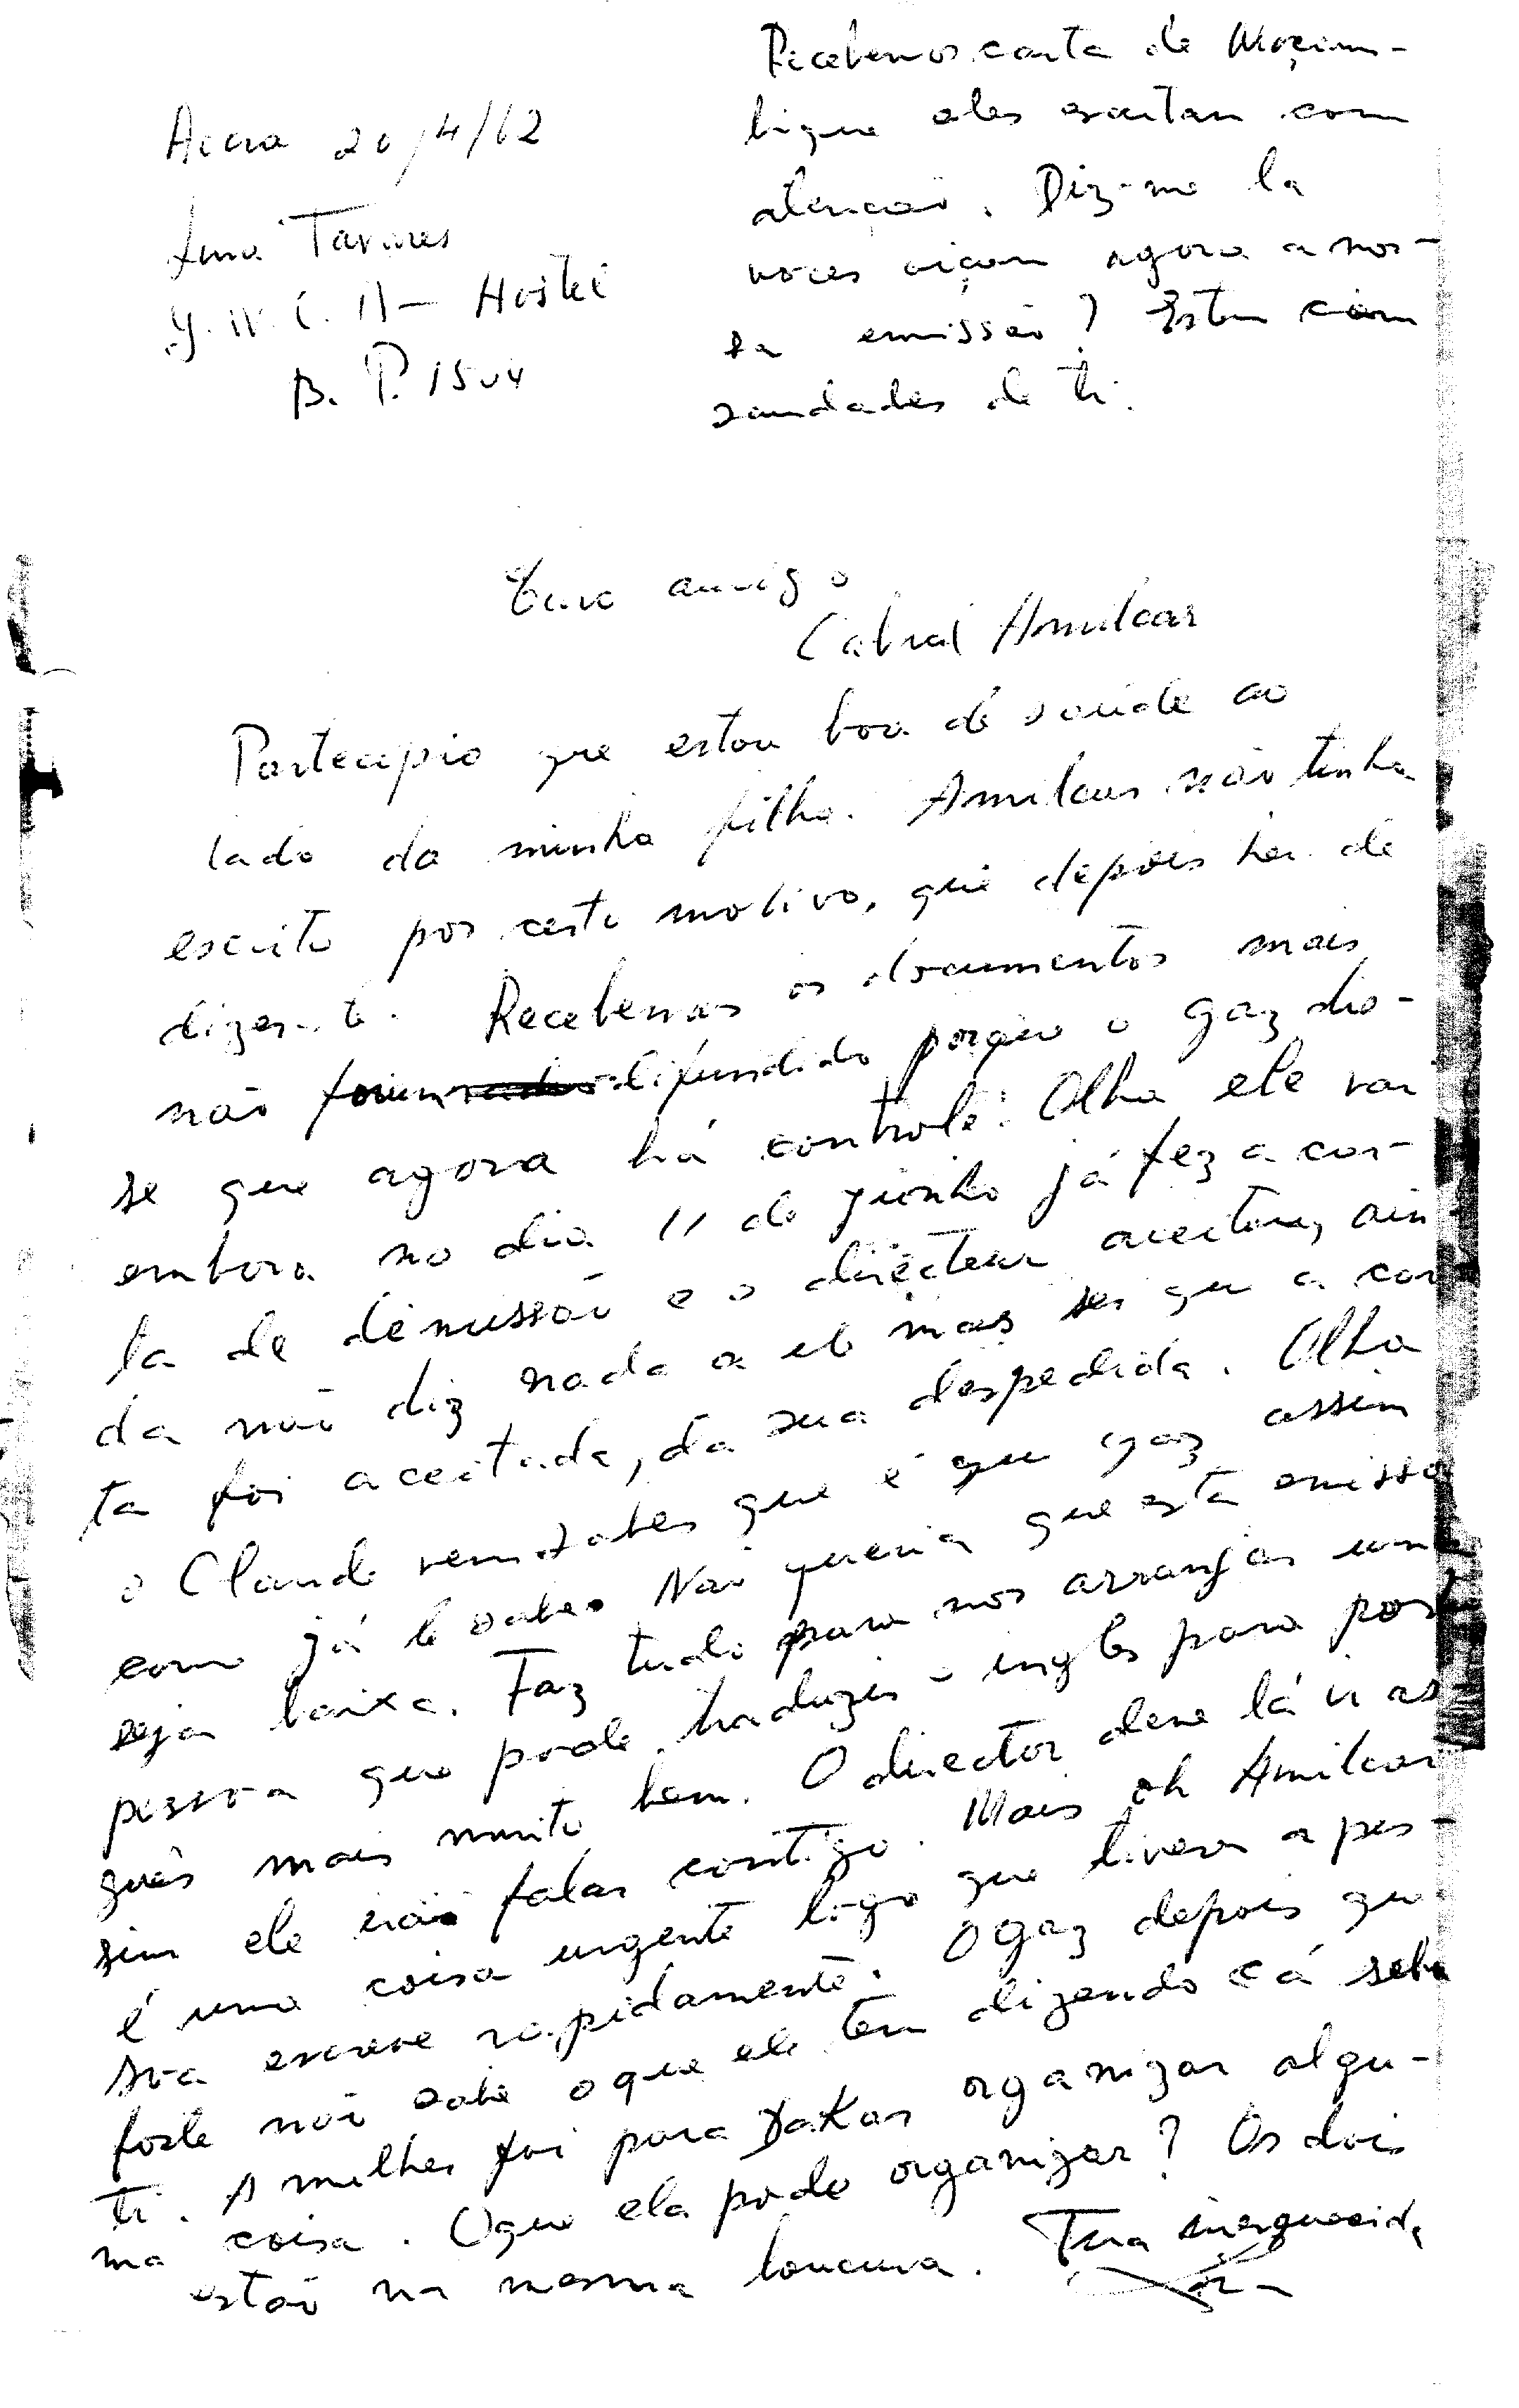 Accra 20/4/62
Tavares
Y.W.C.A - Hostel
B. P. 1504
Recebemos carta de Moçam-
bique eles escutan com
atençao. Diz-me la
voces oiçam agora a nos-
sa emissão? Estou com
saudades de ti.
Caro amigo
Cabral Amilcar
Partecipio que estou boa de saúde ao
lado da minha filha. Amilcar não tinha
escrito por certo motivo, que depois hei de
dizer-te. Recebemos os documentos mais
não foram difundido porque o gaz dis-
se que agora há controle. Olha ele vai
embora no dia 11 de junho já fez a car-
ta de demissão e o directeur aceitou, ain-
da não diz nada a ele mas sei que a car
ta foi aceitada, da sua despedida. Olha
o Claude sabes que é que gaz assim
como já le sabes Não queria que esta emissão
seja baixa. Faz tudo para nos arranjar uma
pessoa que pode traduzir o ingles para portu
guês mais muito bem. O director deve lá ir as-
sim ele irá falar contigo. Mais oh Amilcar
é uma coisa urgente logo que tivera a pes-
soa escreve rapidamente. O gaz depois que
foste não sabe o que ele tem dizendo cá sobre
ti. A mulher foi para Dakar organizar algu-
ma coisa. Oque ela pode organizar? Os dois
estão na mesma loucura. Tua